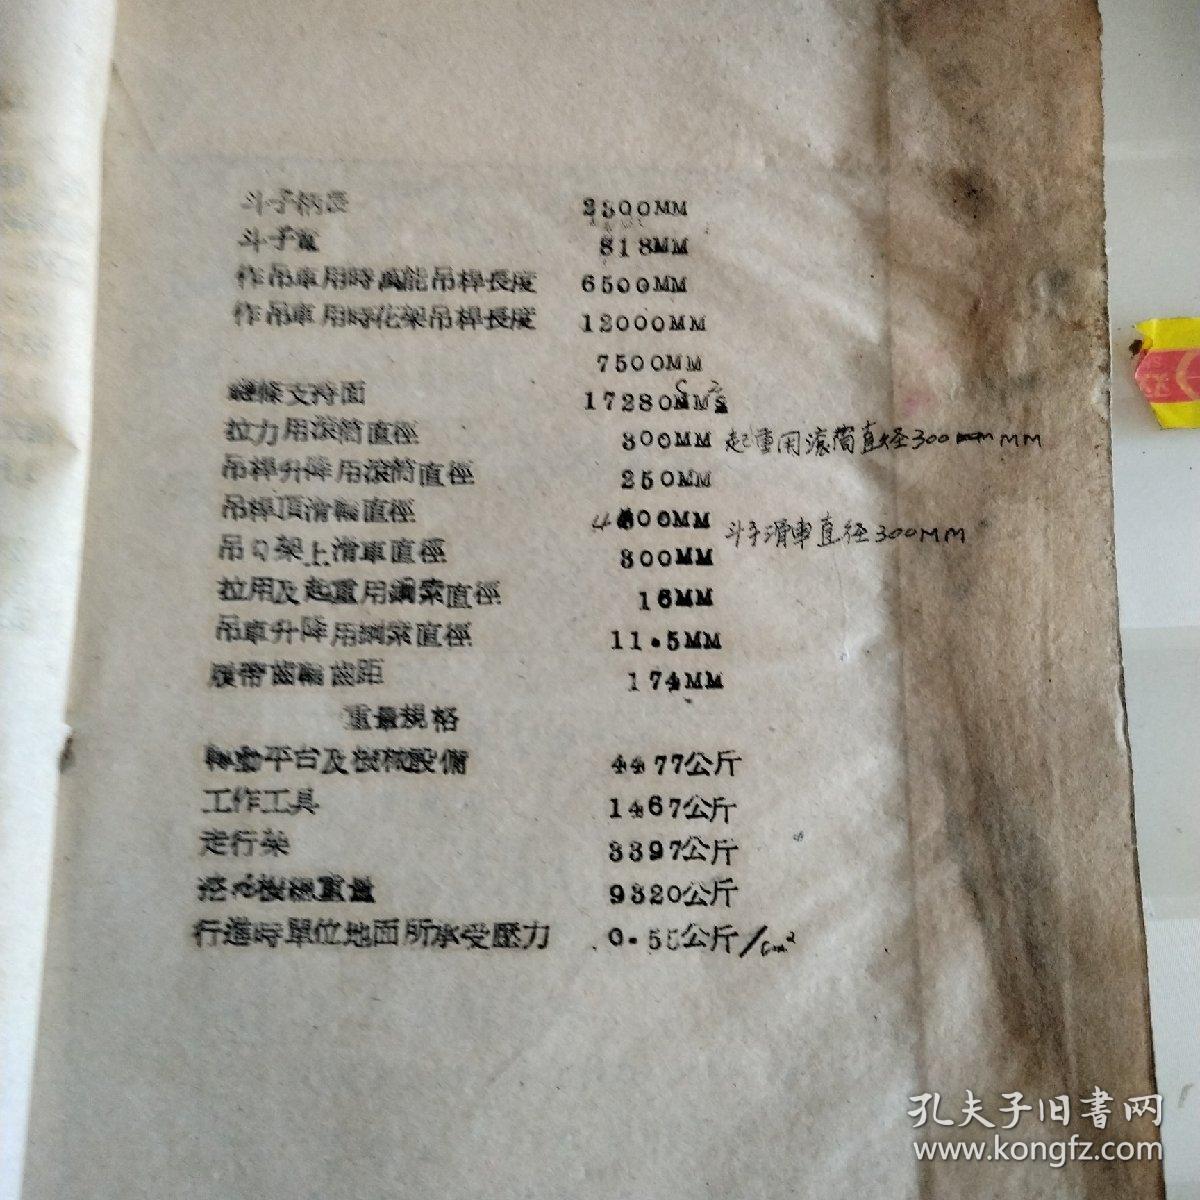 斗子柄長 2300MM
斗子寬 818MM
作吊車用時萬能吊桿長度 6500MM
作吊車用時花架吊桿長度 12000MM
7500MM
鏈條支持面 17280
拉力用滾筒直徑 300MM 起重用滚筒直径300 MM
吊桿升降用滾筒直徑 250MM
吊桿頂滑輪直徑 400MM
斗子滑車直径300MM
吊勾架上滑車直徑 300MM
拉用及起重用鋼索直徑 16MM
吊車升降用鋼索直徑 11.5MM
履帶齒輪齒距 174MM
重量規格
轉動平台及機械設備 4477公斤
工作工具 1467公斤
走行架 3397公斤
挖機總重量 9320公斤
行進時單位地面所承受壓力 0.55公斤/cm²
孔夫子旧書网
www.kongfz.com